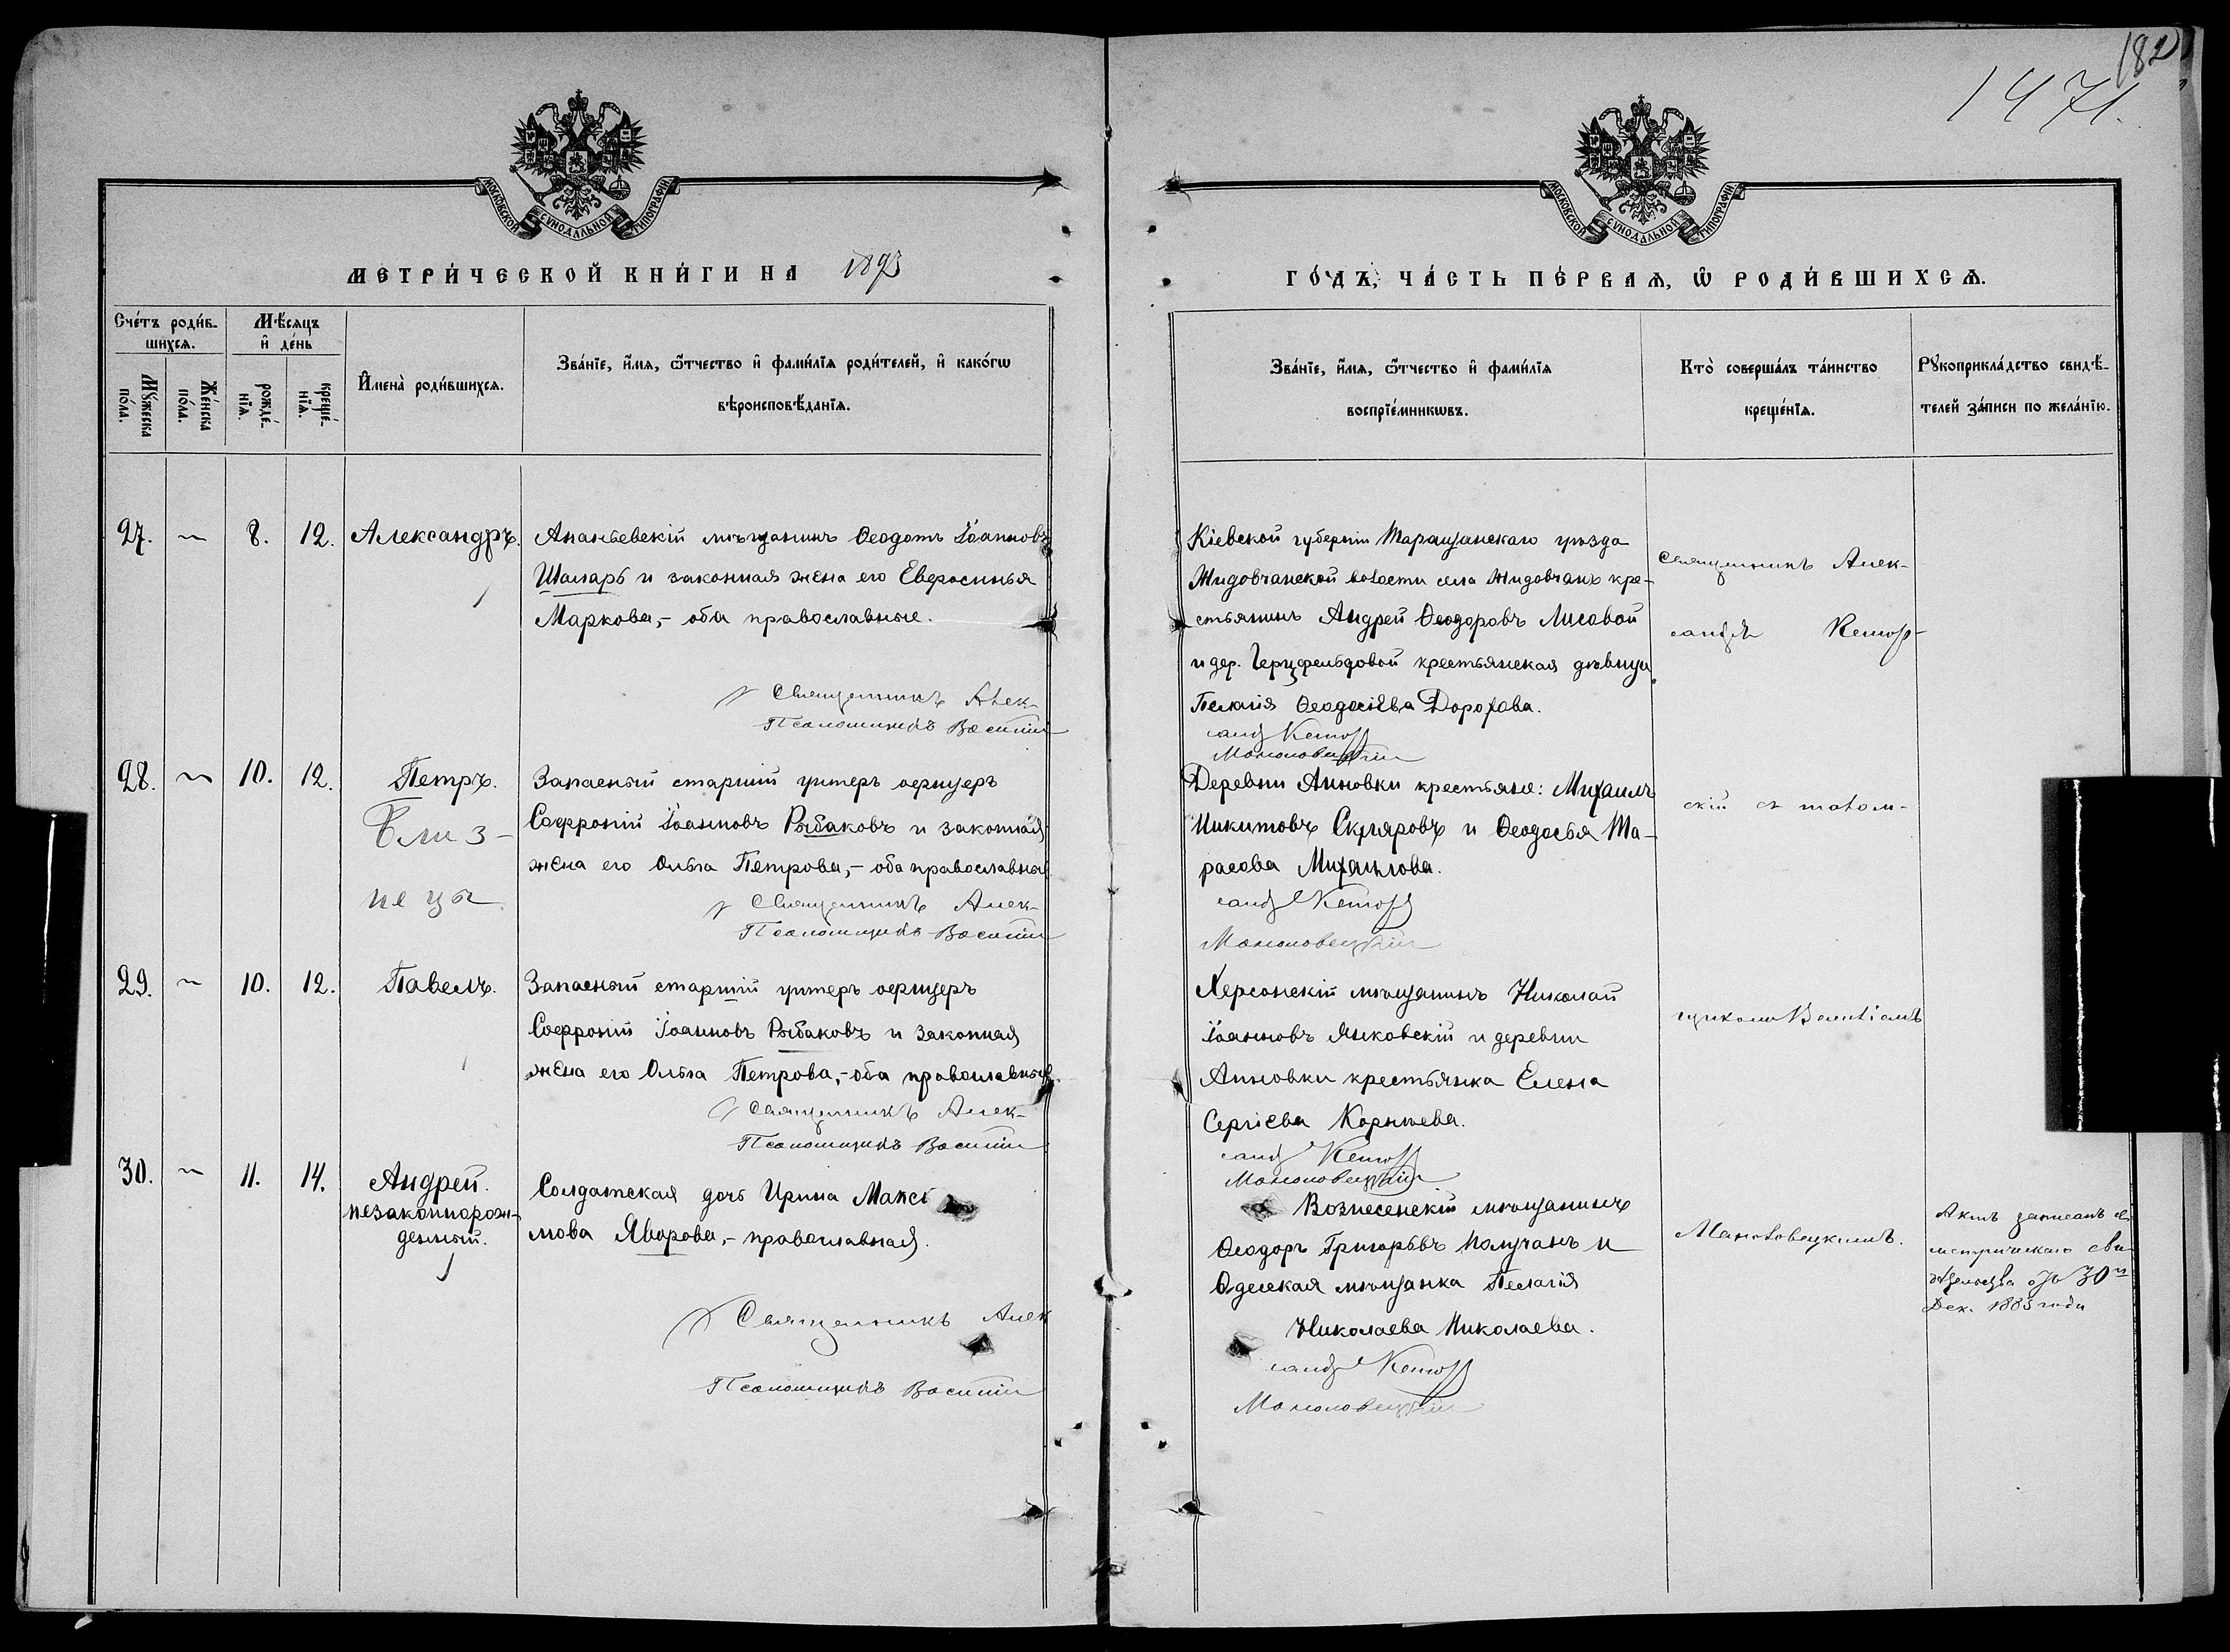 182
1471.
МОСКОВСКОЙ СѴНОДАЛЬНОЙ ТИПОГРАФІИ
МОСКОВСКОЙ СѴНОДАЛЬНОЙ ТИПОГРАФІИ
МЕТРИ́ЧЕСКОЙ КНИ́ГИ НА 1893
ГО́ДЪ, ЧА́СТЬ ПЕ́РВАѦ, Ѿ РОДИ́ВШИХСѦ.
Сче́тъ роди́в-
шихсѧ.
Мꙋ́жеска
по́ла.
Же́нска
по́ла.
Мѣ́сѧцъ
и҆ де́нь
рожде́-
нїѧ.
креще́-
нїѧ.
И҆мена̀ роди́вшихсѧ.
Зва́нїе, и҆́мѧ, ѻ҆́тчество и҆ фами́лїѧ роди́телей, и҆ како́гѡ
вѣроисповѣ́данїѧ.
Зва́нїе, и҆́мѧ, ѻ҆́тчество и҆ фами́лїѧ
воспрїе́мникѡвъ.
Кто̀ соверша́лъ та́инство
креще́нїѧ.
Рꙋкоприкла́дство свидѣ́-
телей за́писи по жела́нїю.
27. 8. 12. Александръ.
Ананьевскій мѣщанинъ Ѳеодотъ Іоанновъ
Шамарь и законная жена его Евфросинья
Маркова,- оба православные.
Священникъ Алек-
Псаломщикъ Василій
Кіевской губерніи Таращанскаго уѣзда
Жидовчанской волости села Жидовчанъ кре-
стьянинъ Андрей Ѳеодоровъ Лисовой
и дер. Герцфельдовой крестьянская дѣвица
Пелагія Ѳеодосіева Дорохова.
санд
Маноловецкій
Священникъ Алек-
сандръ
28. 10. 12. Петръ.
Близ-
нецы
Запасный старшій унтеръ офицеръ
Софроній Іоанновъ Рыбаковъ и законная
жена его Ольга Петрова,- оба православные.
Священникъ Алек-
Псаломщикъ Василій
Деревни Анновки крестьяне: Михаилъ
Никитовъ Скляровъ и Ѳеодосья Та-
расова Михаилова.
санд
Маноловецкій
скій съ псалом-
29. 10. 12. Павелъ.
Запасный старшій унтеръ офицеръ
Софроній Іоанновъ Рыбаковъ и законная
жена его Ольга Петрова,- оба православные.
Священникъ Алек-
Псаломщикъ Василій
Херсонскій мѣщанинъ Николай
Іоанновъ Янковскій и деревни
Анновки крестьянка Елена
Сергіева Корнѣева.
санд
Маноловецкій
щикомъ Василіемъ
30. 11. 14. Андрей.
незаконнорож-
денный.
Солдатская дочь Ирина Макси
мова Яворова,- православная.
Священникъ Алек
Псаломщикъ Василій
Вознесенскій мѣщанинъ
Ѳеодоръ Григорьевъ Получанъ и
Одесская мѣщанка Пелагія
Николаева Николаева.
санд
Маноловецкій
Маноловецкимъ.
Актъ записанъ съ
метрическаго сви
дѣтельства отъ 30го
Дек. года